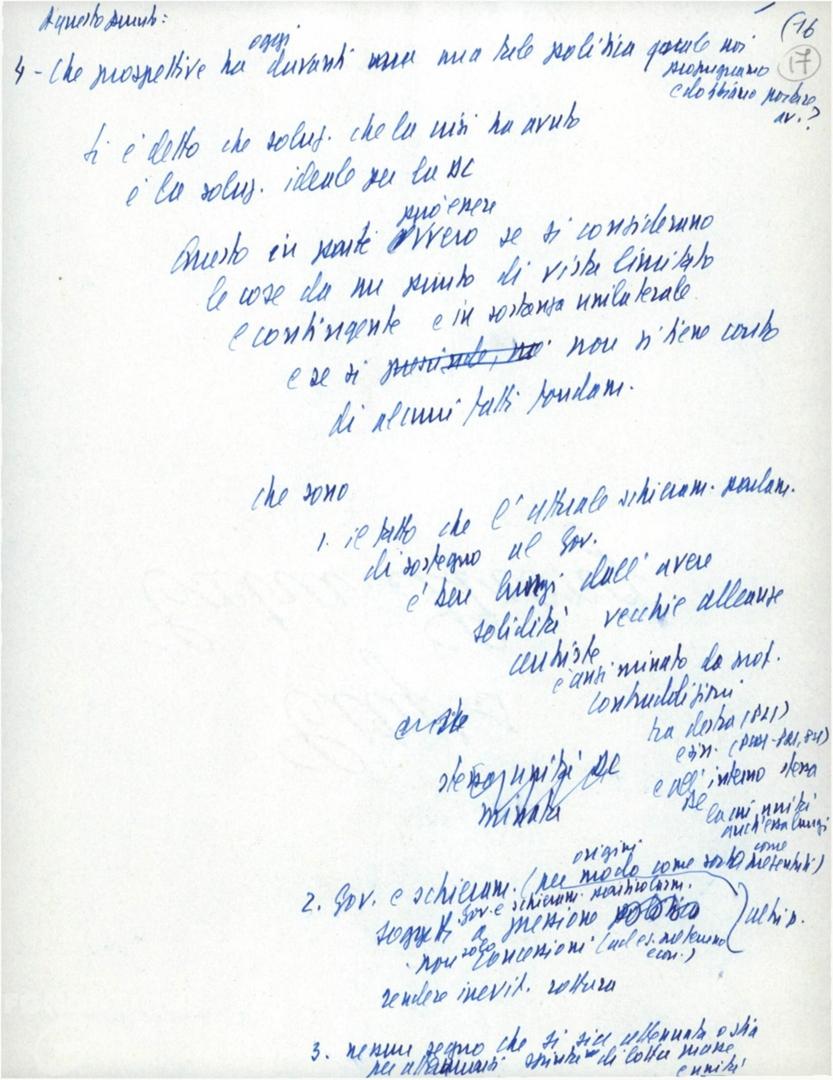 A questo punto:
(16
17
4 - Che prospettive ha oggi davanti una tale politica quale noi
propugniamo
e dobbiamo portare
av.?
Si è detto che soluz. che la crisi ha avuto
è la soluz. ideale per la DC
Questo in parte può essere vero se si considerano
le cose da un punto di vista limitato
e contingente e in sostanza unilaterale
e se si non si tiene conto
di alcuni fatti fondam.
che sono
1. il fatto che l'attuale schieram. parlam.
di sostegno al Gov.
è ben lungi dall'avere
solidità vecchie alleanze
centriste
è anzi minato da prof.
contraddizioni
tra destra
e sin.
e all'interno stessa
DC
la cui unità
anch'essa lungi
stessa unità DC
minata
2. Gov. e schieram. (per origini modo come sorto come presentati)
Gov. e schieram. particolarm.
soggetti a pressione
non solo concessioni
econ.)
rendere inevit. rottura
3. nessun segno che si sia attenuata o stia
per attenuarsi spinta di lotta masse
e unità